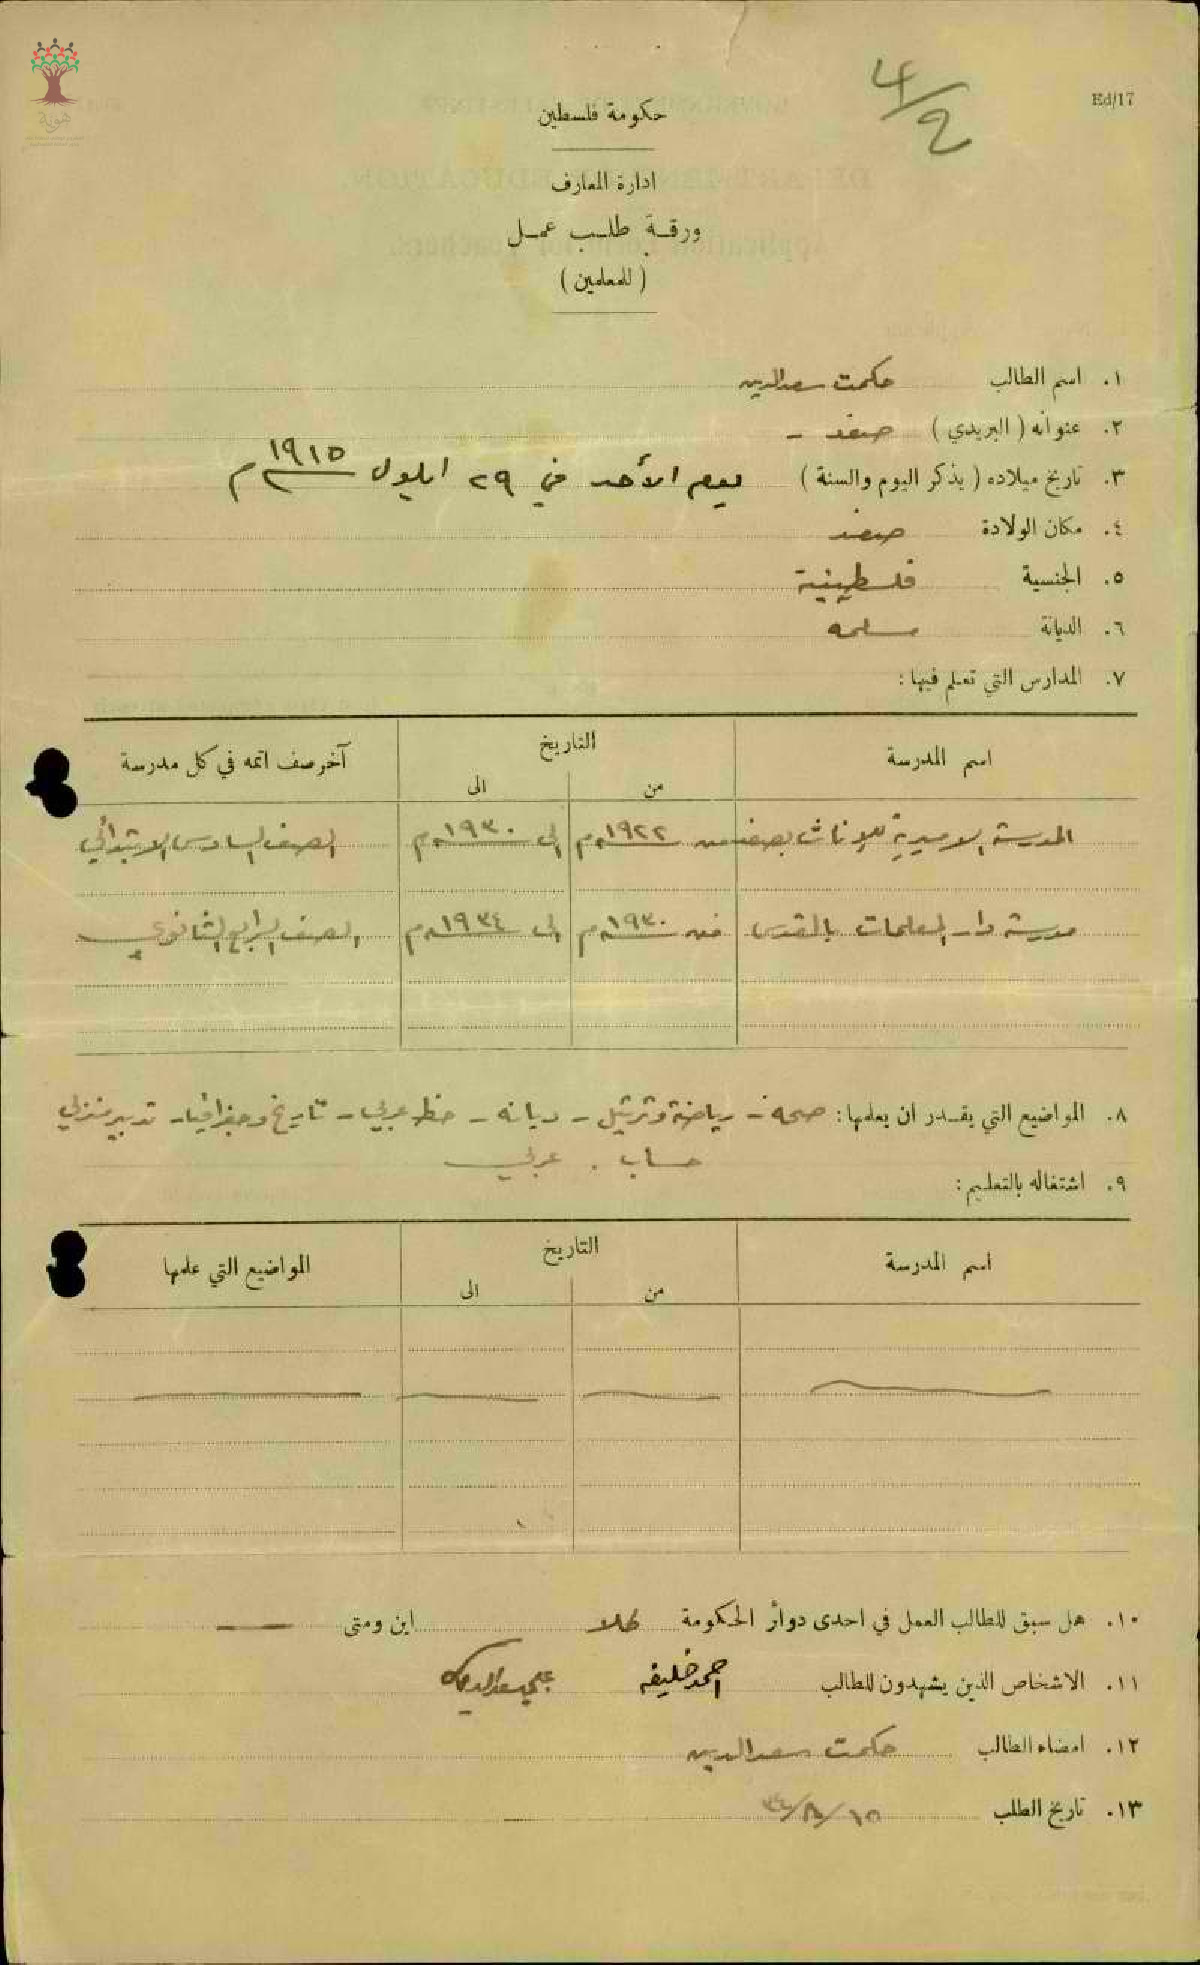 4/2
Ed/17
هوية
حكومة فلسطين
ادارة المعارف
ورقة طلب عمل
( للمعلمين )
١. اسم الطالب حكمت سعدالدين
٢. عنوانه ( البريدي ) صفد -
٣. تاريخ ميلاده ( يذكر اليوم والسنة ) يوم الأحد في ٢٩ ايلول ١٩١٥ م
٤. مكان الولادة صفد
٥. الجنسية فلسطينية
٦. الديانة مسلمه
٧. المدارس التي تعلم فيها :
اسم المدرسة التاريخ آخر صف اتمه في كل مدرسة
من الى
المدرسة الاميرية للإناث بصفد من ١٩٢٢م الى ١٩٣٠م الصف السادس الابتدائي
مدرسة دار المعلمات بالقدس من ١٩٣٠م الى ١٩٣٤م الصف الرابع الثانوي
٨. المواضيع التي يقدر ان يعلمها : صحه - رياضة وترتيل - ديانه - خط عربي - تاريخ وجغرافيا - تدبير منزلي
حساب . عربي
٩. اشتغاله بالتعليم :
اسم المدرسة التاريخ المواضيع التي علمها
من الى
١٠. هل سبق للطالب العمل في احدى دوائر الحكومة كلا اين ومتى —
١١. الاشخاص الذين يشهدون للطالب احمد خليفه
١٢. امضاء الطالب حكمت سعدالدين
١٣. تاريخ الطلب ١٥/٨/٣٤